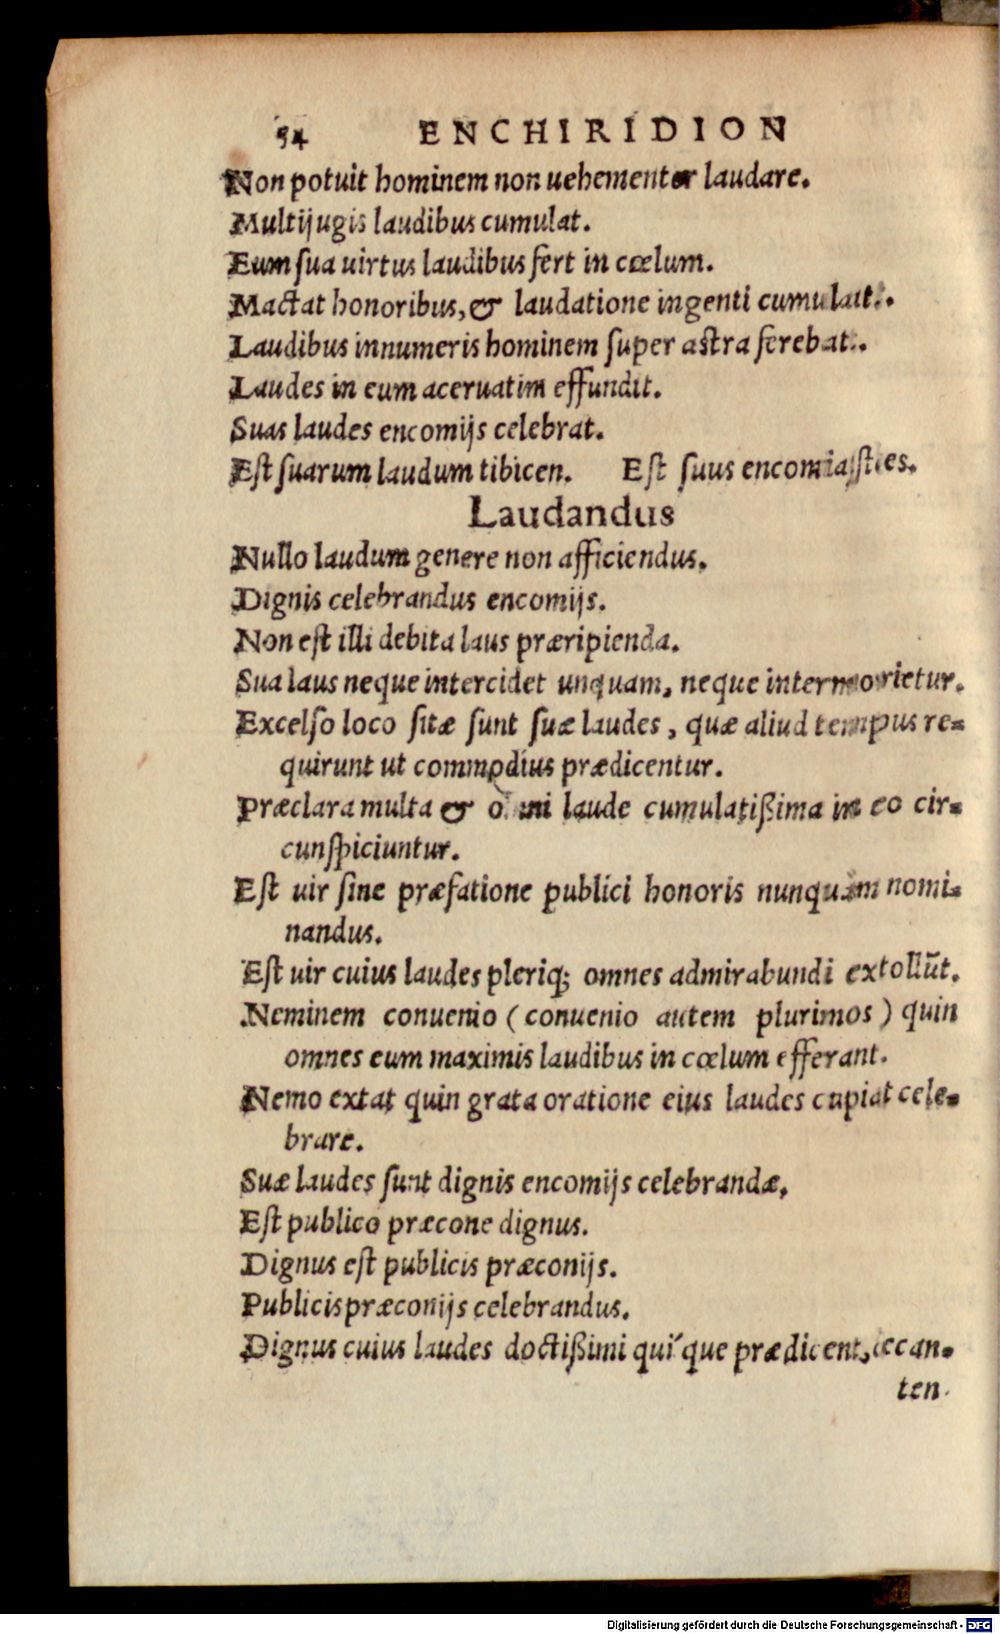 54 ENCHIRIDION
Non potuit hominem non uehementer laudare.
Multijugis laudibus cumulat.
Eum sua uirtus laudibus fert in cœlum.
Mactat honoribus, & laudatione ingenti cumulait.
Laudibus innumeris hominem super astra ferebat.
Laudes in eum aceruatim effundit.
Suas laudes encomijs celebrat.
Est suarum laudum tibicen. Est suus encomiastes.
Laudandus
Nullo laudum genere non afficiendus.
Dignis celebrandus encomijs.
Non est illi debita laus præripienda.
Sua laus neque intercidet unquam, neque intermorietur.
Excelso loco sitæ sunt suæ laudes, quæ aliud tempus re-
quirunt ut commodius prædicentur.
Præclara multa & omni laude cumulatißima in eo cir-
cunspiciuntur.
Est uir sine præfatione publici honoris nunquam nomi-
nandus.
Est uir cuius laudes pleriq; omnes admirabundi extollūt.
Neminem conuenio (conuenio autem plurimos) quin
omnes eum maximis laudibus in cœlum efferant.
Nemo extat quin grata oratione eius laudes cupiat cele-
brare.
Suæ laudes sunt dignis encomijs celebrandæ.
Est publico præcone dignus.
Dignus est publicis præconijs.
Publicis præconijs celebrandus.
Dignus cuius laudes doctißimi quique prædicent, decan-
ten
Digitalisierung gefördert durch die Deutsche Forschungsgemeinschaft - DFG